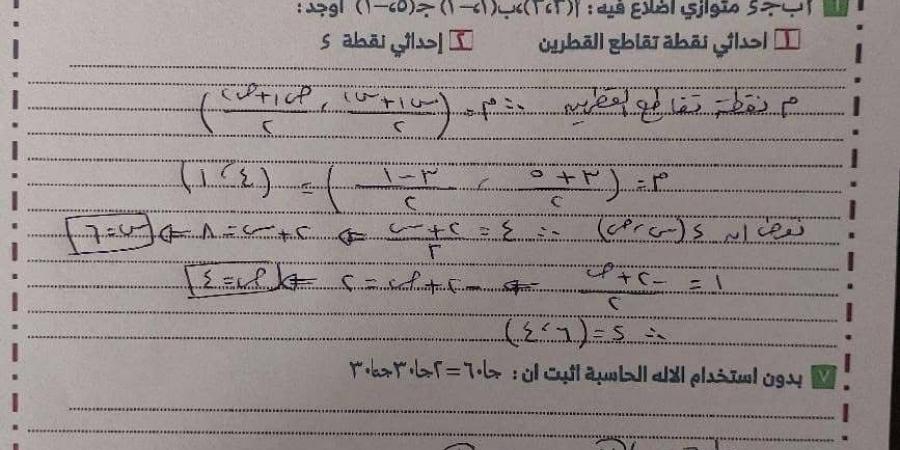 ٦ ا ب جـ د متوازي أضلاع فيه: ا(٣،٣)، ب(٢،-١) جـ(٥،-١) اوجد:
١ احداثي نقطة تقاطع القطرين ٢ إحداثي نقطة د
م نقطة تقاطع القطرين ∴ م = (س١+س٢/٢ ، ص١+ص٢/٢)
م = (٣+٥/٢ ، ٣-١/٢) = (٤،١)
نفرض ان د(س،ص) ∴ ٤ = ٢+س/٢ ⇐ ٢+س=٨ ⇐ س=٦
١ = -٢+ص/٢ ⇐ -٢+ص=٢ ⇐ ص=٤
∴ د=(٦،٤)
٧ بدون استخدام الاله الحاسبة اثبت ان: جا٦٠=٢جا٣٠جتا٣٠